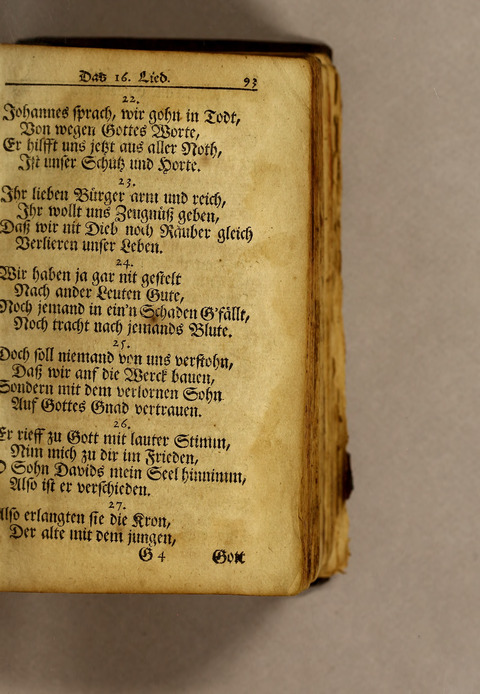 Das 16. Lied. 93
22.
Johannes sprach, wir gohn in Todt,
Von wegen Gottes Worte,
Er hilfft uns jetzt aus aller Noth,
Ist unser Schutz und Horte.
23.
Ihr lieben Bürger arm und reich,
Ihr wollt uns Zeugnüß geben,
Daß wir nit Dieb noch Räuber gleich
Verlieren unser Leben.
24.
Wir haben ja gar nit gestelt
Nach ander Leuten Gute,
Noch jemand in ein'n Schaden G'fällt,
Noch tracht nach jemands Blute.
25.
Doch soll niemand von uns verstohn,
Daß wir auf die Werck bauen,
Sondern mit dem verlornen Sohn
Auf Gottes Gnad vertrauen.
26.
Er rieff zu Gott mit lauter Stimm,
Nim mich zu dir im Frieden,
O Sohn Davids mein Seel hinnimm,
Also ist er verschieden.
27.
Also erlangten sie die Kron,
Der alte mit dem jungen,
G 4 Gott